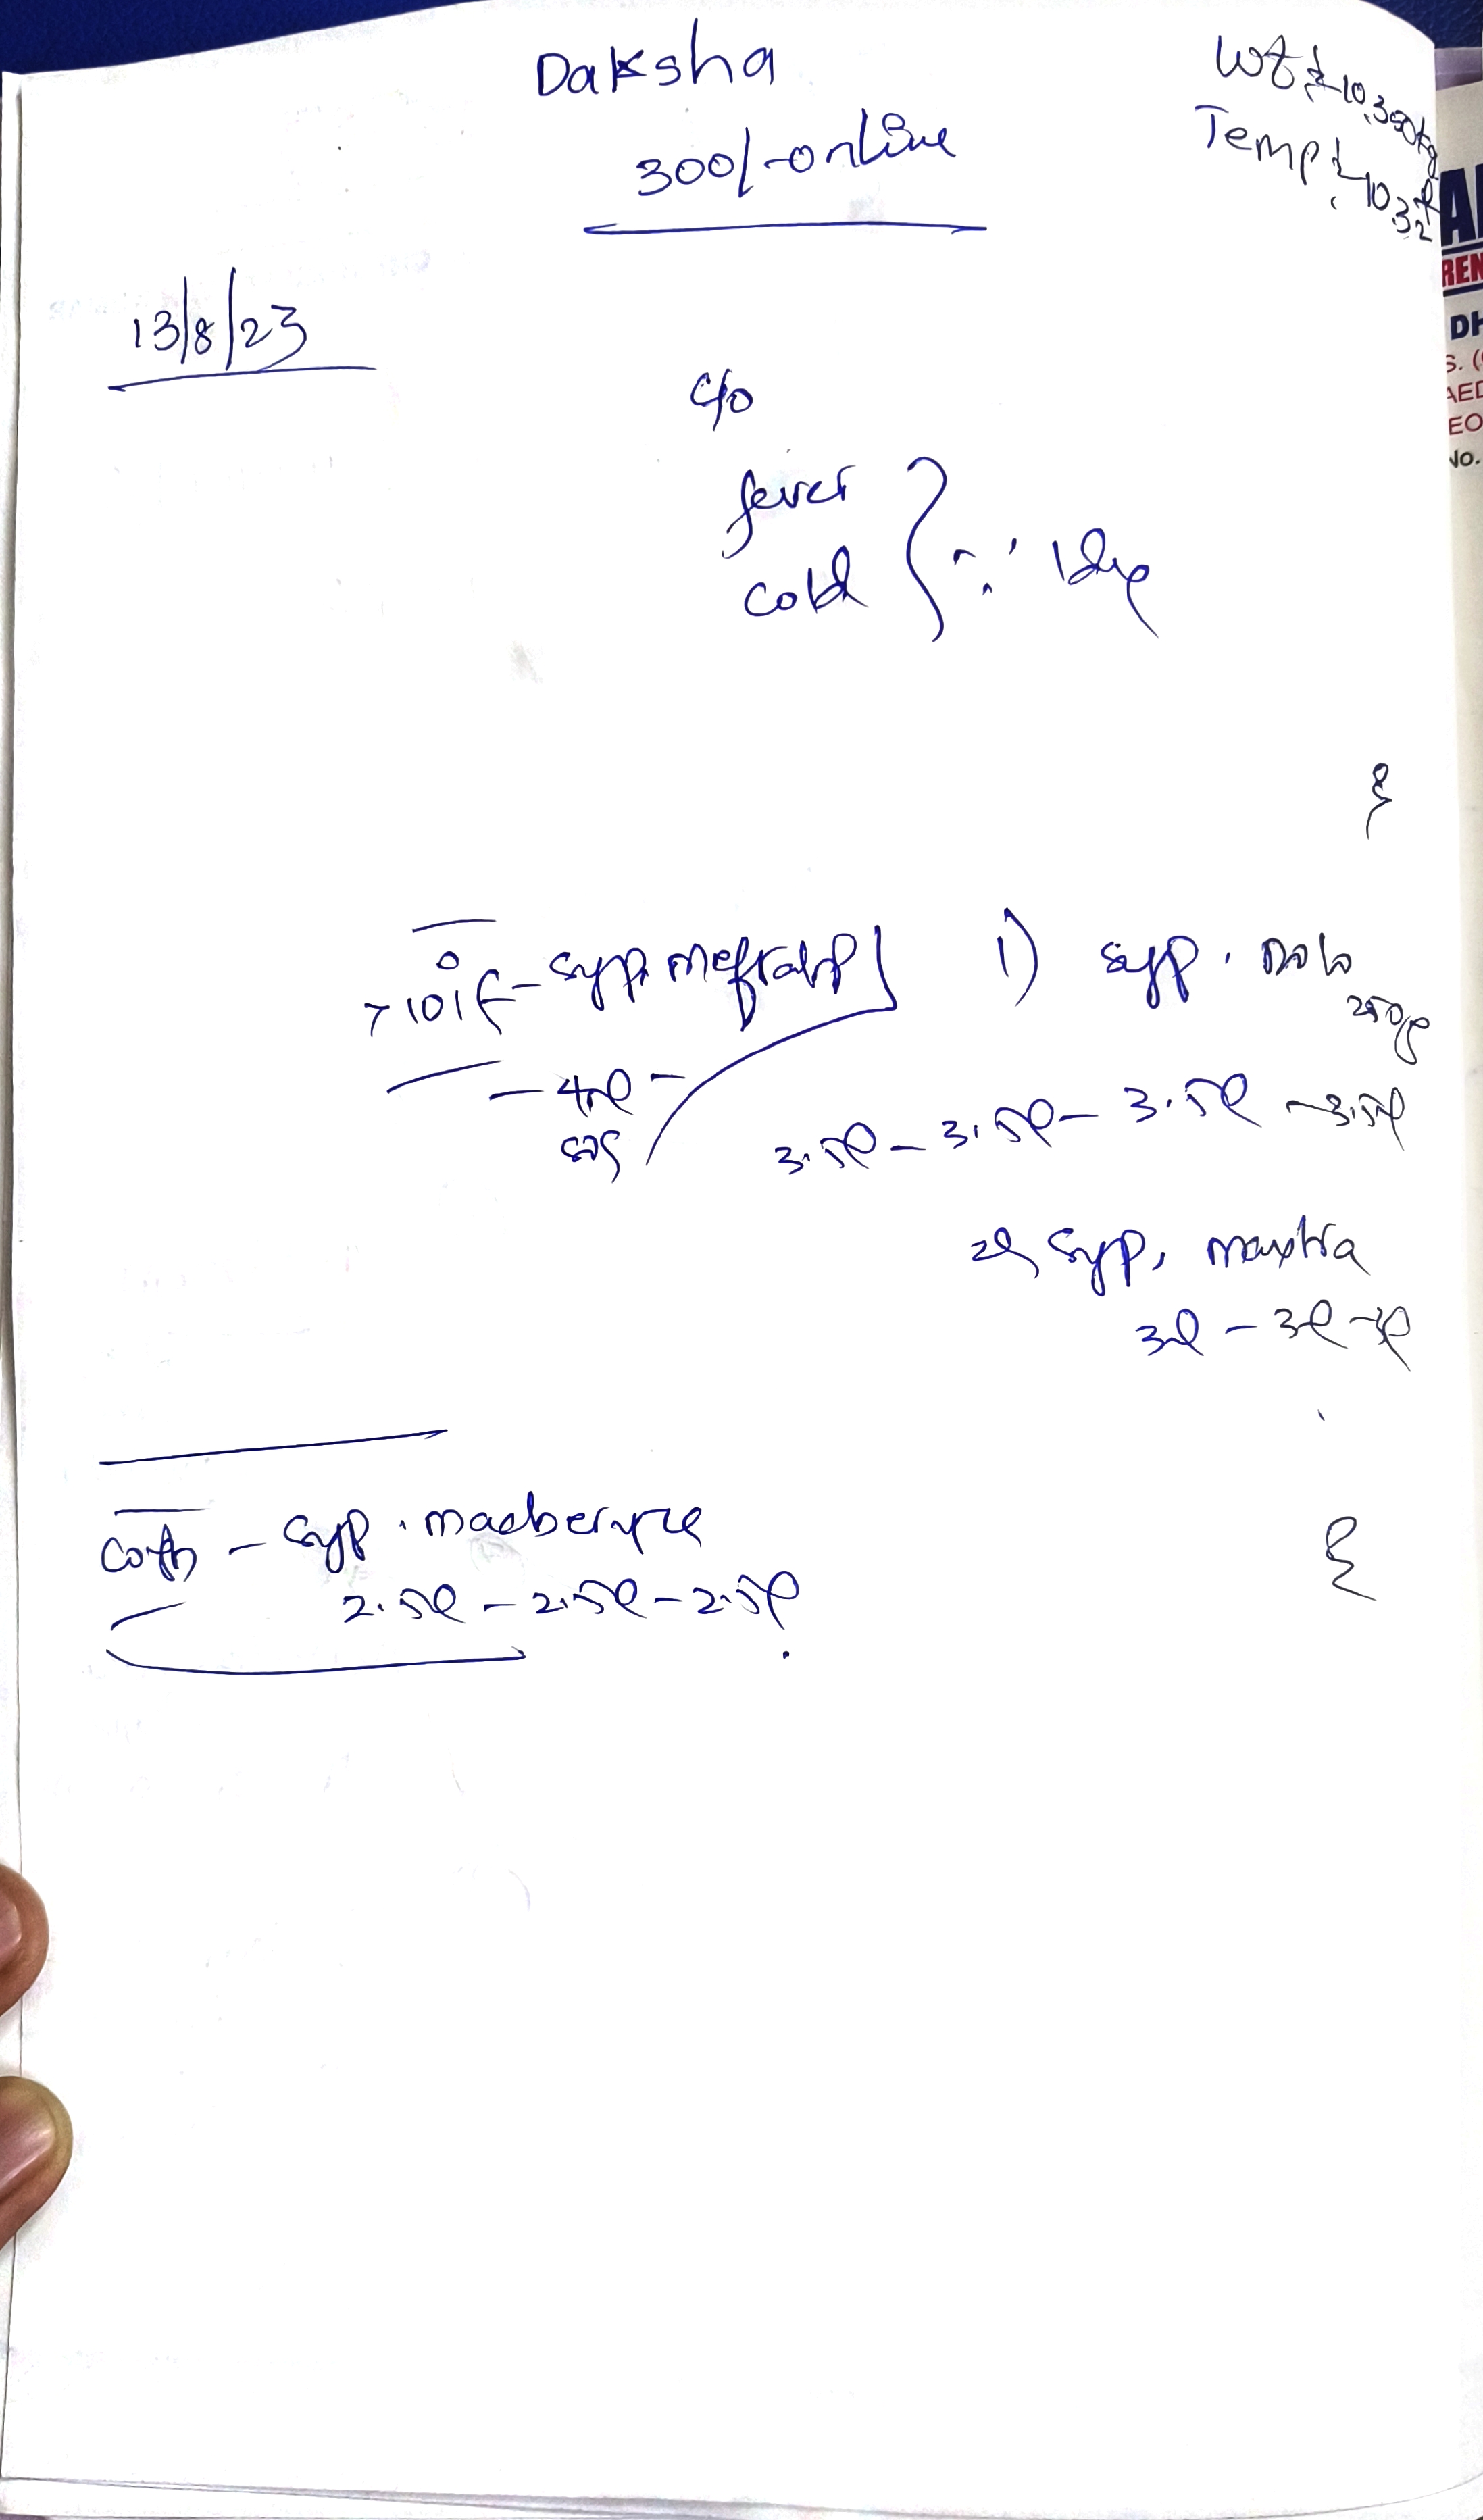 Daksha
300/-online
Wt:- 10.350kg
Temp:- 103.2°f
13/8/23
c/o
fever
cold
1day
>101°f - Syp. meftalp
- 4ml -
sos
1) Syp. Dolo
250
3.5ml - 3.5ml - 3.5ml - 3.5ml
2) Syp. maxtra
3ml - 3ml - 3ml
- Syp. macbery
2.5ml - 2.5ml - 2.5ml
REN
DH
S. (
AED
EO
No.